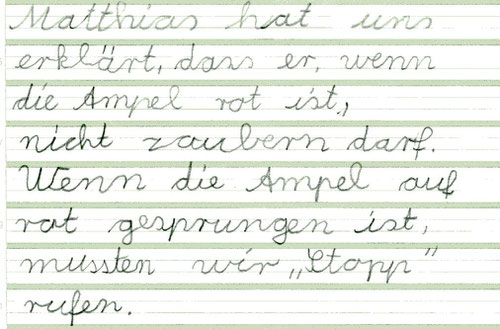 Matthias hat uns
erklärt, dass er, wenn
die Ampel rot ist,
nicht zaubern darf.
Wenn die Ampel auf
rot gesprungen ist,
mussten wir „Stopp"
rufen.